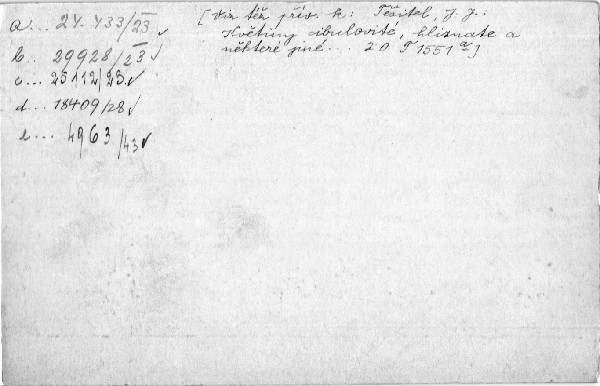 a... 24-433/23 ✓
b... 29928/23 ✓
c... 25112/23 ✓
d... 18409/28 ✓
e... 4963/43 ✓
[Viz též přív. k: Těšitel, J. J.:
Květiny cibulovité, hlíznaté a
některé jiné... 20 T 1551 a]